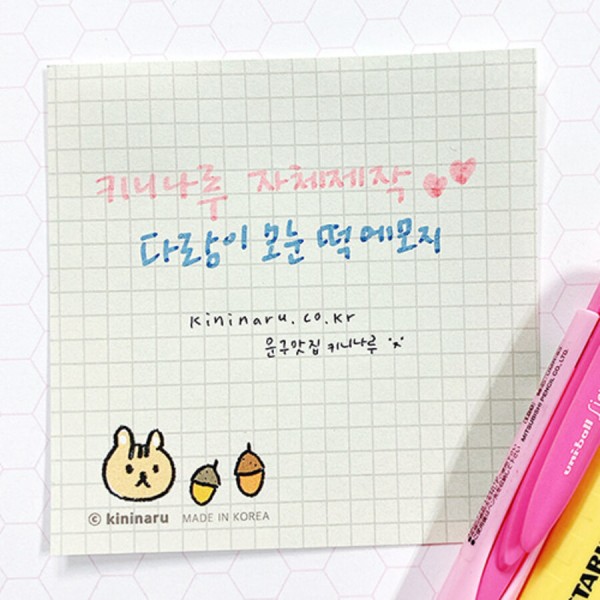 키니나루 자체제작
다람이 모눈 떡메모지
kininaru.co.kr
문구맛집 키니나루
© kininaru MADE IN KOREA
MITSUBISHI PENCIL CO., LTD.
uni-ball